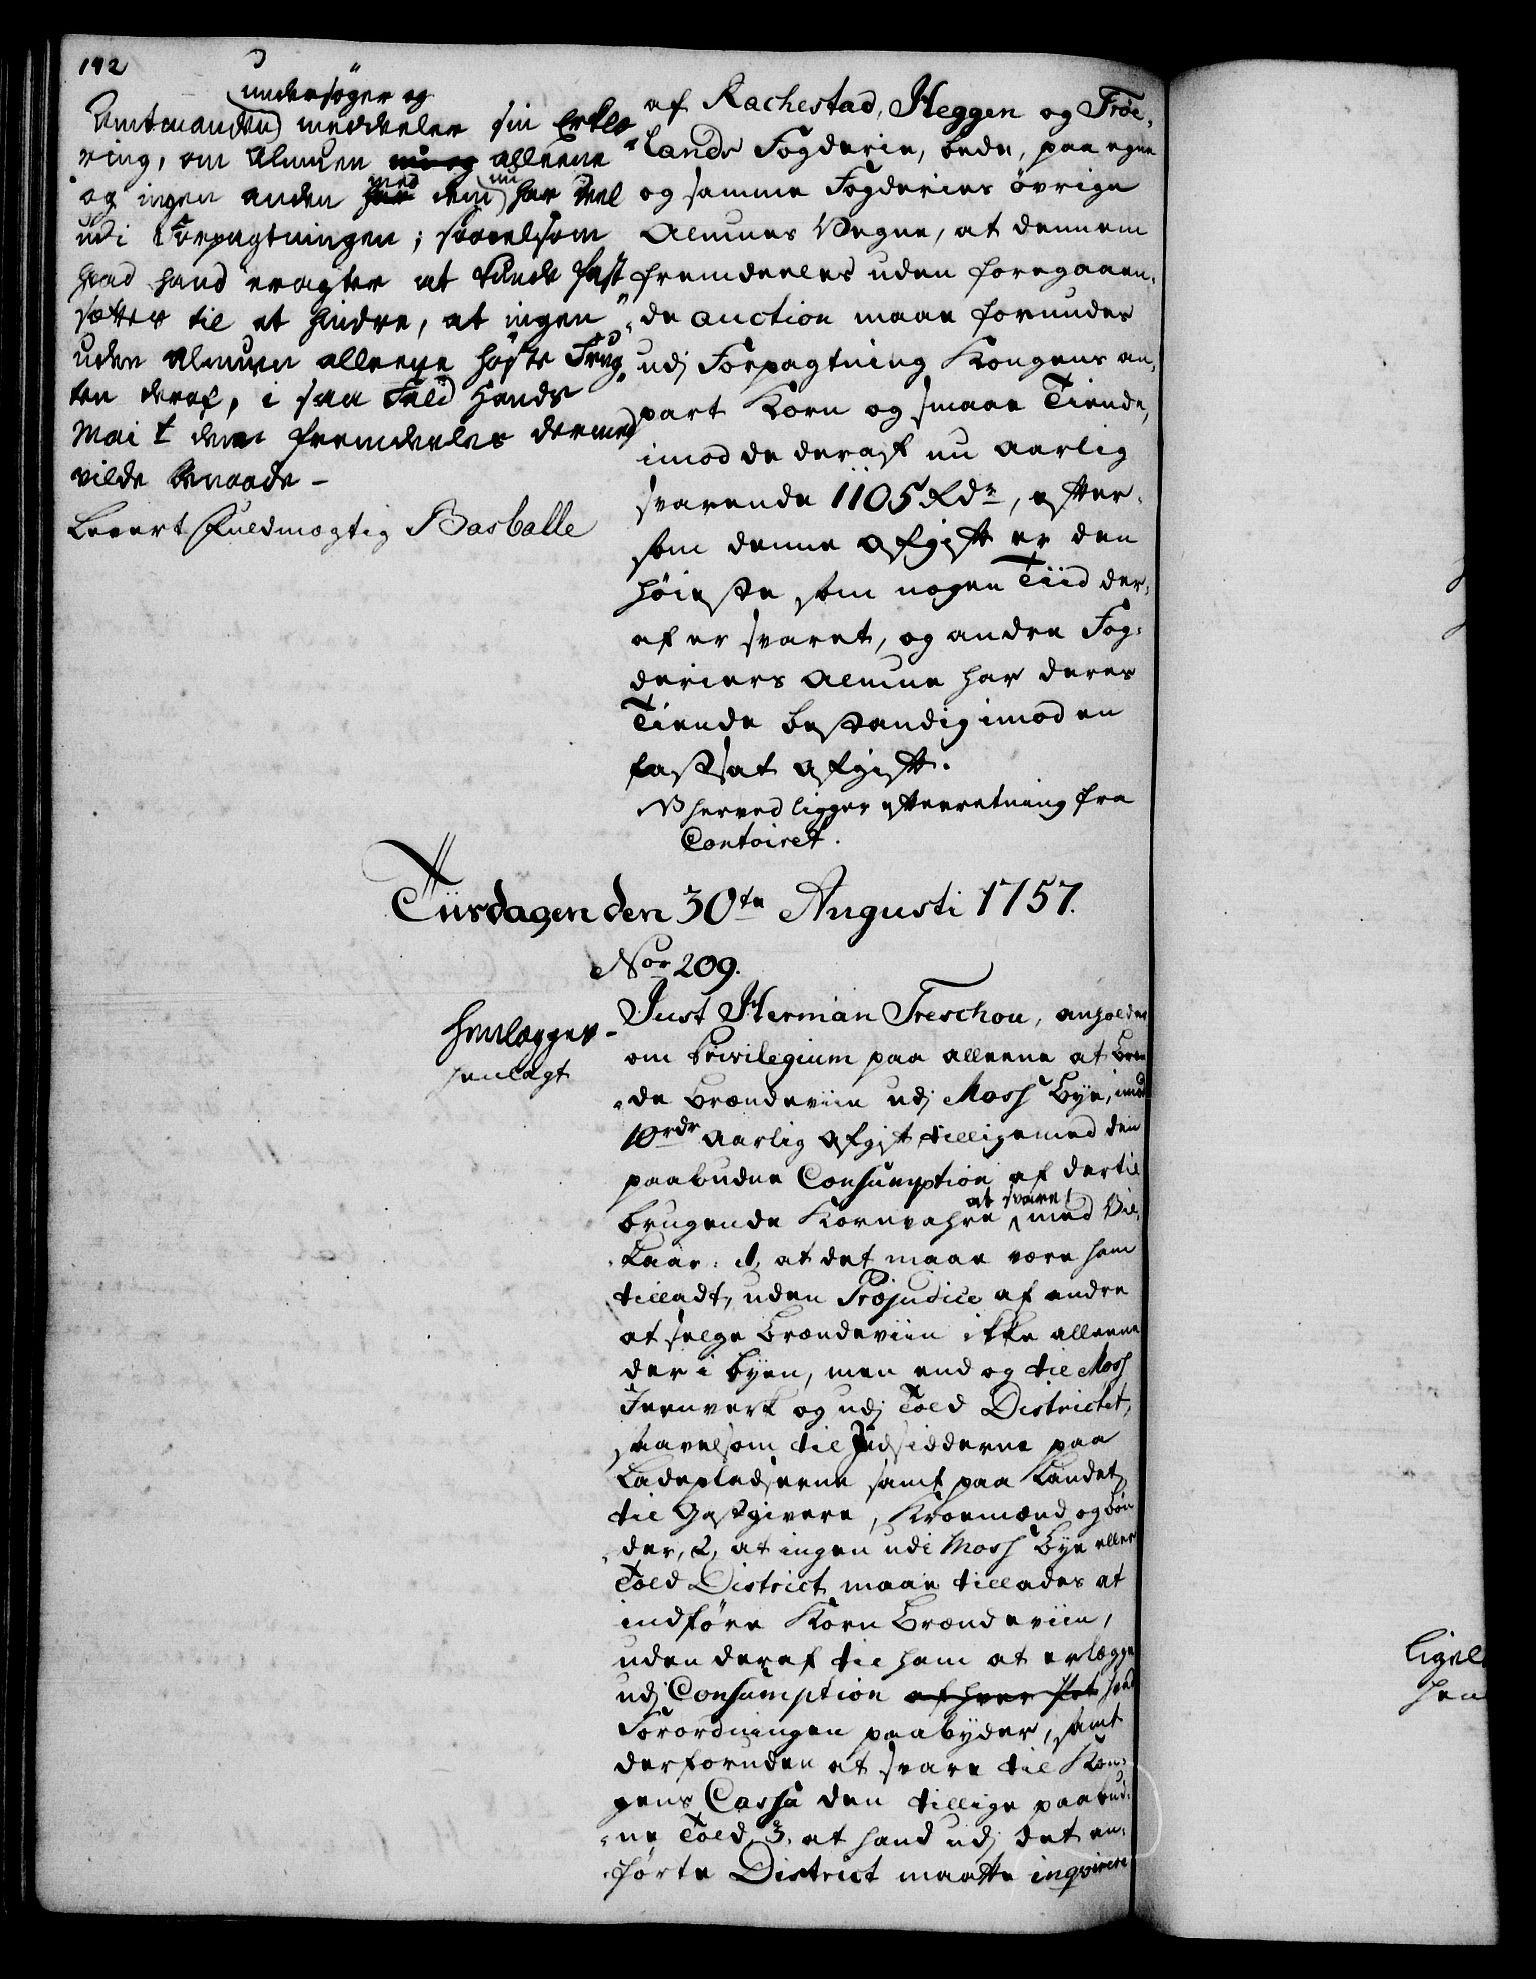 192
undersøger og
Amtmanden meddeeler sin Erklæ-
ring, om Almuen alleene
og ingen anden med dem nu har Deel
udi Forpagtningen; saavelsom
hvad hand eragter at kunde fast
sættes til at hindre, at ingen
uden Almuen alleene høste Frug-
ten deraf, i saa Fald Hands
Mai t dem fremdeeles dermed
vilde benaade -
Levert Fuldmægtig Basballe
af Rachestad, Heggen og Frøe-
lands Fogderie, bede, paa egne
og samme Fogderies øvrige
Almues Vegne, at dennem
fremdeeles uden foregaaen-
de auction maae forundes
udj Forpagtning Kongens an-
part Korn og smaae Tiende,
imod de deraf nu aarlig
svarende 1105 Rdr, efter-
som denne afgift er den
høieste som nogen Tiid der-
af er svaret, og andre Fog-
deriers Almue har deres
Tiende bestandig imod en
fastsat afgift.
NB herved ligger efterretning fra
Contoiret.
Tiirsdagen den 30te Augusti 1757.
Nor 209.
Henlægges -
henlagt
Just Herman Treschou, anholder
om Privilegium paa alleene at bræn-
de Brændeviin udj Moss Bye, imod
10 rdr aarlig afgift tilligemed den
paabudne Consumption af dertil
brugende Kornvahre at svare, med Vil-
kaar: 1, at det maae være ham
tilladt, uden Præjudice af andre
at selge Brændeviin ikke alleene
der i Byen, men end og til Moss
Jernverk og udj Told Districtet,
saavelsom til Indsidderne paa
Ladepladserne samt paa Landet
til Gastgivere, Kroemænd og Bøn-
der, 2, at ingen udi Moss Bye eller
Told District maae tillades at
indføre Korn Brændeviin,
uden deraf til ham at erlægge
udj Consumption af hver Pot hvad
Forordningen paabyder, samt
desforuden at svare til Kon-
gens Cassa den tillige paabud-
ne Told, 3, at hand udj det an-
førte District maatte inqvirere